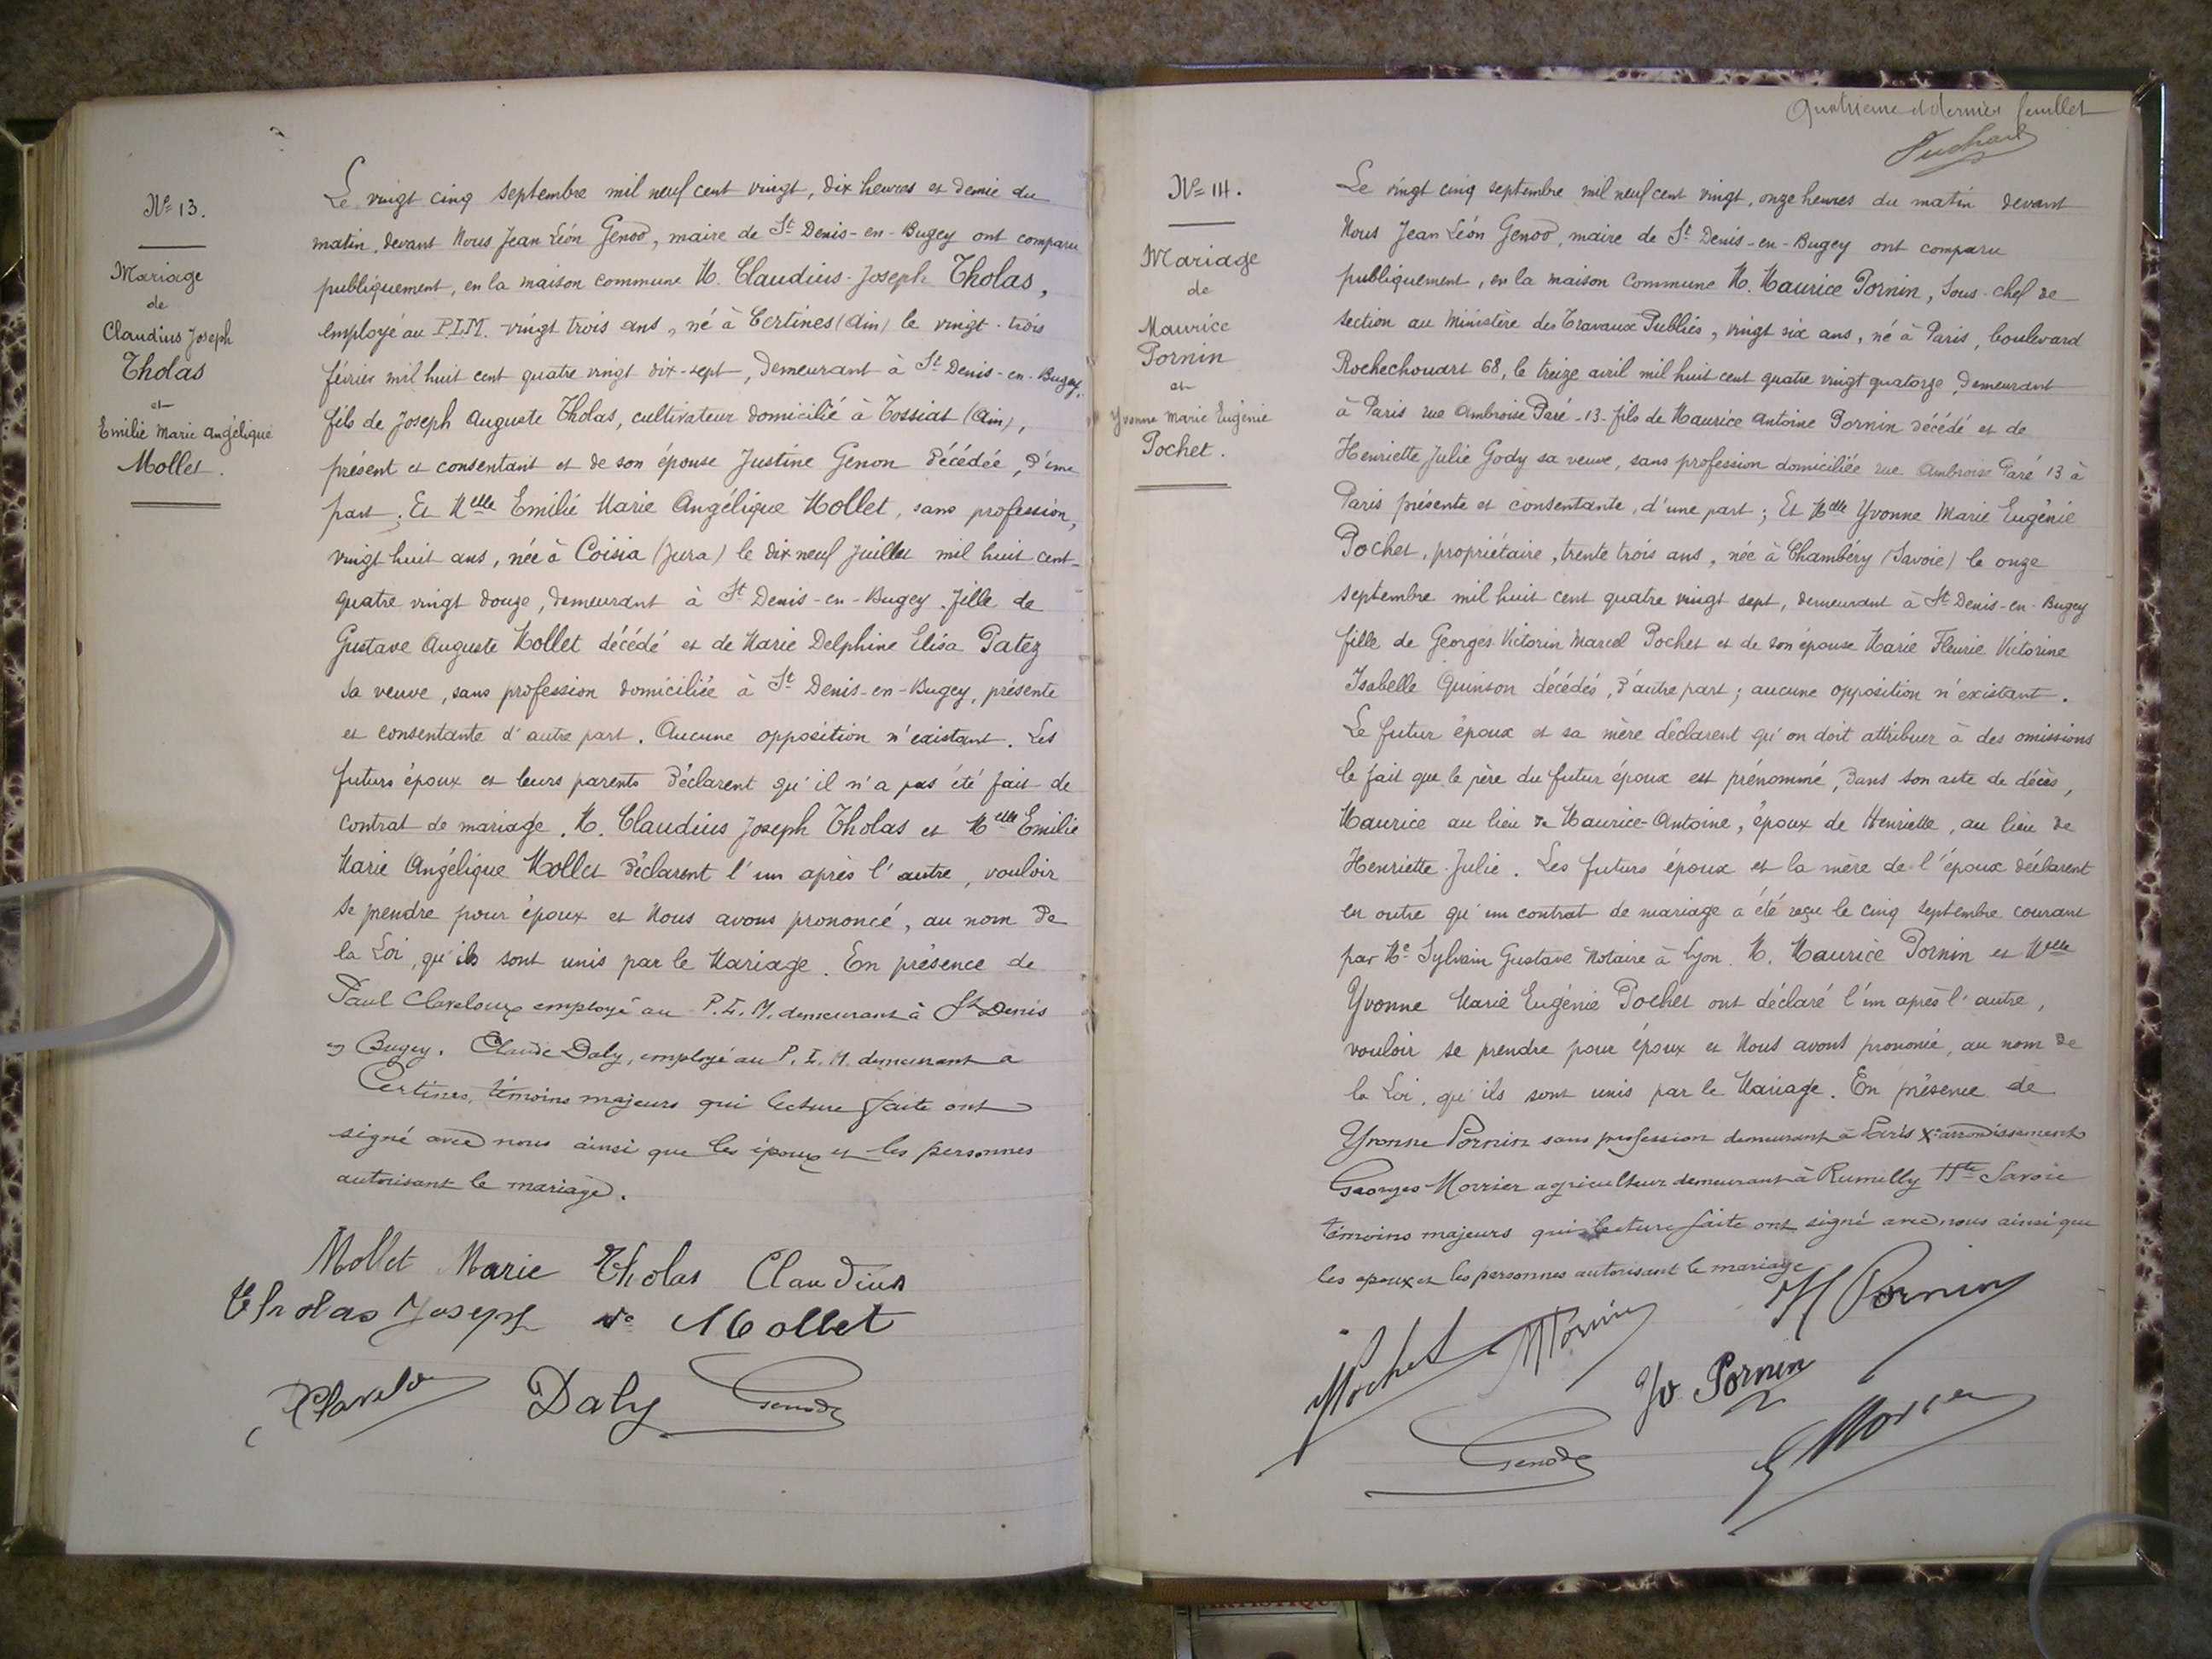 Nº 13.
Mariage
de
Claudius Joseph
Tholas
et
Emilie Marie Angélique
Mollet.
Le vingt cinq septembre mil neuf cent vingt, dix heures et demie du
matin, devant Nous Jean Léon Genod, maire de St Denis-en-Bugey ont comparu
publiquement, en la maison commune M. Claudius-Joseph Tholas,
employé au P.L.M. vingt trois ans, né à Certines (Ain) le vingt-trois
février mil huit cent quatre vingt dix-sept, demeurant à St Denis-en-Bugey,
fils de Joseph Auguste Tholas, cultivateur domicilié à Tossiat (Ain),
présent et consentant et de son épouse Justine Genon décédée, d'une
part; Et Melle Emilie Marie Angélique Mollet, sans profession,
vingt huit ans, née à Coisia (Jura) le dix neuf Juillet mil huit cent
quatre vingt douze, demeurant à St Denis-en-Bugey. fille de
Gustave Auguste Mollet décédé et de Marie Delphine Elisa Patez
sa veuve, sans profession domiciliée à St Denis-en-Bugey, présente
et consentante d'autre part. Aucune opposition n'existant. Les
futurs époux et leurs parents déclarent qu'il n'a pas été fait de
contrat de mariage. M. Claudius Joseph Tholas et Melle Emilie
Marie Angélique Mollet déclarent l'un après l'autre, vouloir
se prendre pour époux et Nous avons prononcé, au nom de
la Loi, qu'ils sont unis par le Mariage. En présence de
Paul Claveloux employé au P.L.M. demeurant à St Denis
en Bugey. Claude Daly, employé au P.L.M. demeurant à
Certines, témoins majeurs qui lecture faite ont
signé avec nous ainsi que les époux et les personnes
autorisant le mariage.
Mollet Marie Tholas Claudius
Tholas Joseph Ve Mollet
Daly Genod
Quatrième et dernier feuillet
Nº 14.
Mariage
de
Maurice
Pornin
et
Yvonne Marie Eugénie
Pochet.
Le vingt cinq septembre mil neuf cent vingt, onze heures du matin devant
Nous Jean Léon Genod, maire de St Denis-en-Bugey ont comparu
publiquement, en la maison commune M. Maurice Pornin, sous-chef de
section au Ministère des Travaux Publics, vingt six ans, né à Paris, boulevard
Rochechouart 68, le treize avril mil huit cent quatre vingt quatorze, demeurant
à Paris rue Ambroise Paré -13- fils de Maurice Antoine Pornin décédé et de
Henriette Julie Gody sa veuve, sans profession domiciliée rue Ambroise Paré 13 à
Paris présente et consentante, d'une part; Et Melle Yvonne Marie Eugénie
Pochet, propriétaire, trente trois ans, née à Chambéry (Savoie) le onze
septembre mil huit cent quatre vingt sept, demeurant à St Denis-en-Bugey
fille de Georges Victorin Marcel Pochet et de son épouse Marie Fleurie Victorine
Isabelle Quinson décédés, d'autre part; aucune opposition n'existant.
Le futur époux et sa mère déclarent qu'on doit attribuer à des omissions
le fait que le père du futur époux est prénommé, dans son acte de décès,
Maurice au lieu de Maurice-Antoine, époux de Henriette, au lieu de
Henriette-Julie. Les futurs époux et la mère de l'époux déclarent
en outre qu'un contrat de mariage a été reçu le cinq septembre courant
par Me Sylvain Gustave Notaire à Lyon. M. Maurice Pornin et Melle
Yvonne Marie Eugénie Pochet ont déclaré l'un après l'autre,
vouloir se prendre pour époux et Nous avons prononcé, au nom de
la Loi, qu'ils sont unis par le Mariage. En présence de
Yvonne Pornin sans profession demeurant à Paris Xe arrondissement
Georges Morrier agriculteur demeurant à Rumilly Hte Savoie
témoins majeurs qui lecture faite ont signé avec nous ainsi que
les époux et les personnes autorisant le mariage
YPochet MPornin H Pornin
Yv. Pornin
Genod G Morrier
ARTISTIQUE